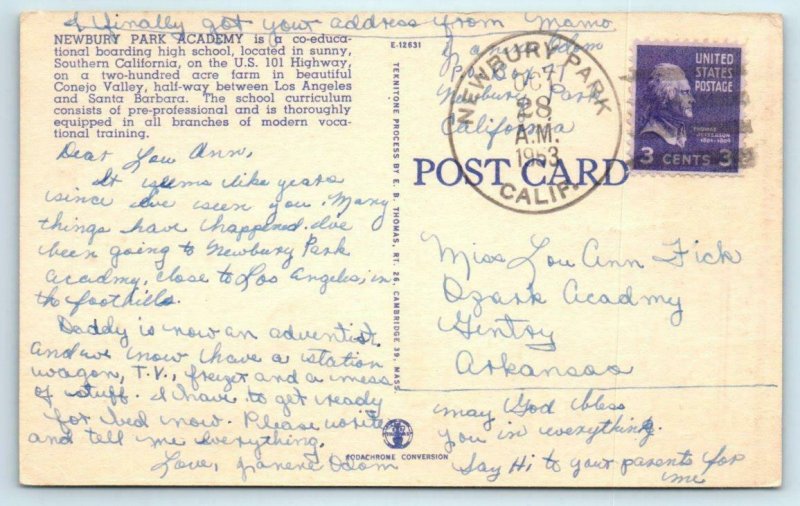 I finally got your address from Mamo
NEWBURY PARK ACADEMY is a co-educa-
tional boarding high school, located in sunny,
Southern California, on the U.S. 101 Highway,
on a two-hundred acre farm in beautiful
Conejo Valley, half-way between Los Angeles
and Santa Barbara. The school curriculum
consists of pre-professional and is thoroughly
equipped in all branches of modern voca-
tional training.
Dear Lou Ann,
It seems like years
since I've seen you. Many
things have happened. I've
been going to Newbury Park
Academy, close to Los Angeles, in
the foothills.
Daddy is now an adventist.
And we now have a station
wagon, T.V., freezer and a mess
of stuff. I have to get ready
for bed now. Please write
and tell me everything.
Love, Janene Odom
E-12631
TEKNITONE PROCESS BY E. B. THOMAS, RT. 26, CAMBRIDGE 39, MASS.
KODACHROME CONVERSION
Odom
P.O. Box 71
Newbury Park
California
NEWBURY PARK
OCT
28
A.M.
1953
CALIF.
UNITED
STATES
POSTAGE
THOMAS
JEFFERSON
1801-1809
3 CENTS 3
POST CARD
Miss Lou Ann Fick
Ozark Acadmy
Gentry
Arkansas
may God bless
you in everything.
Say Hi to your parents for
me